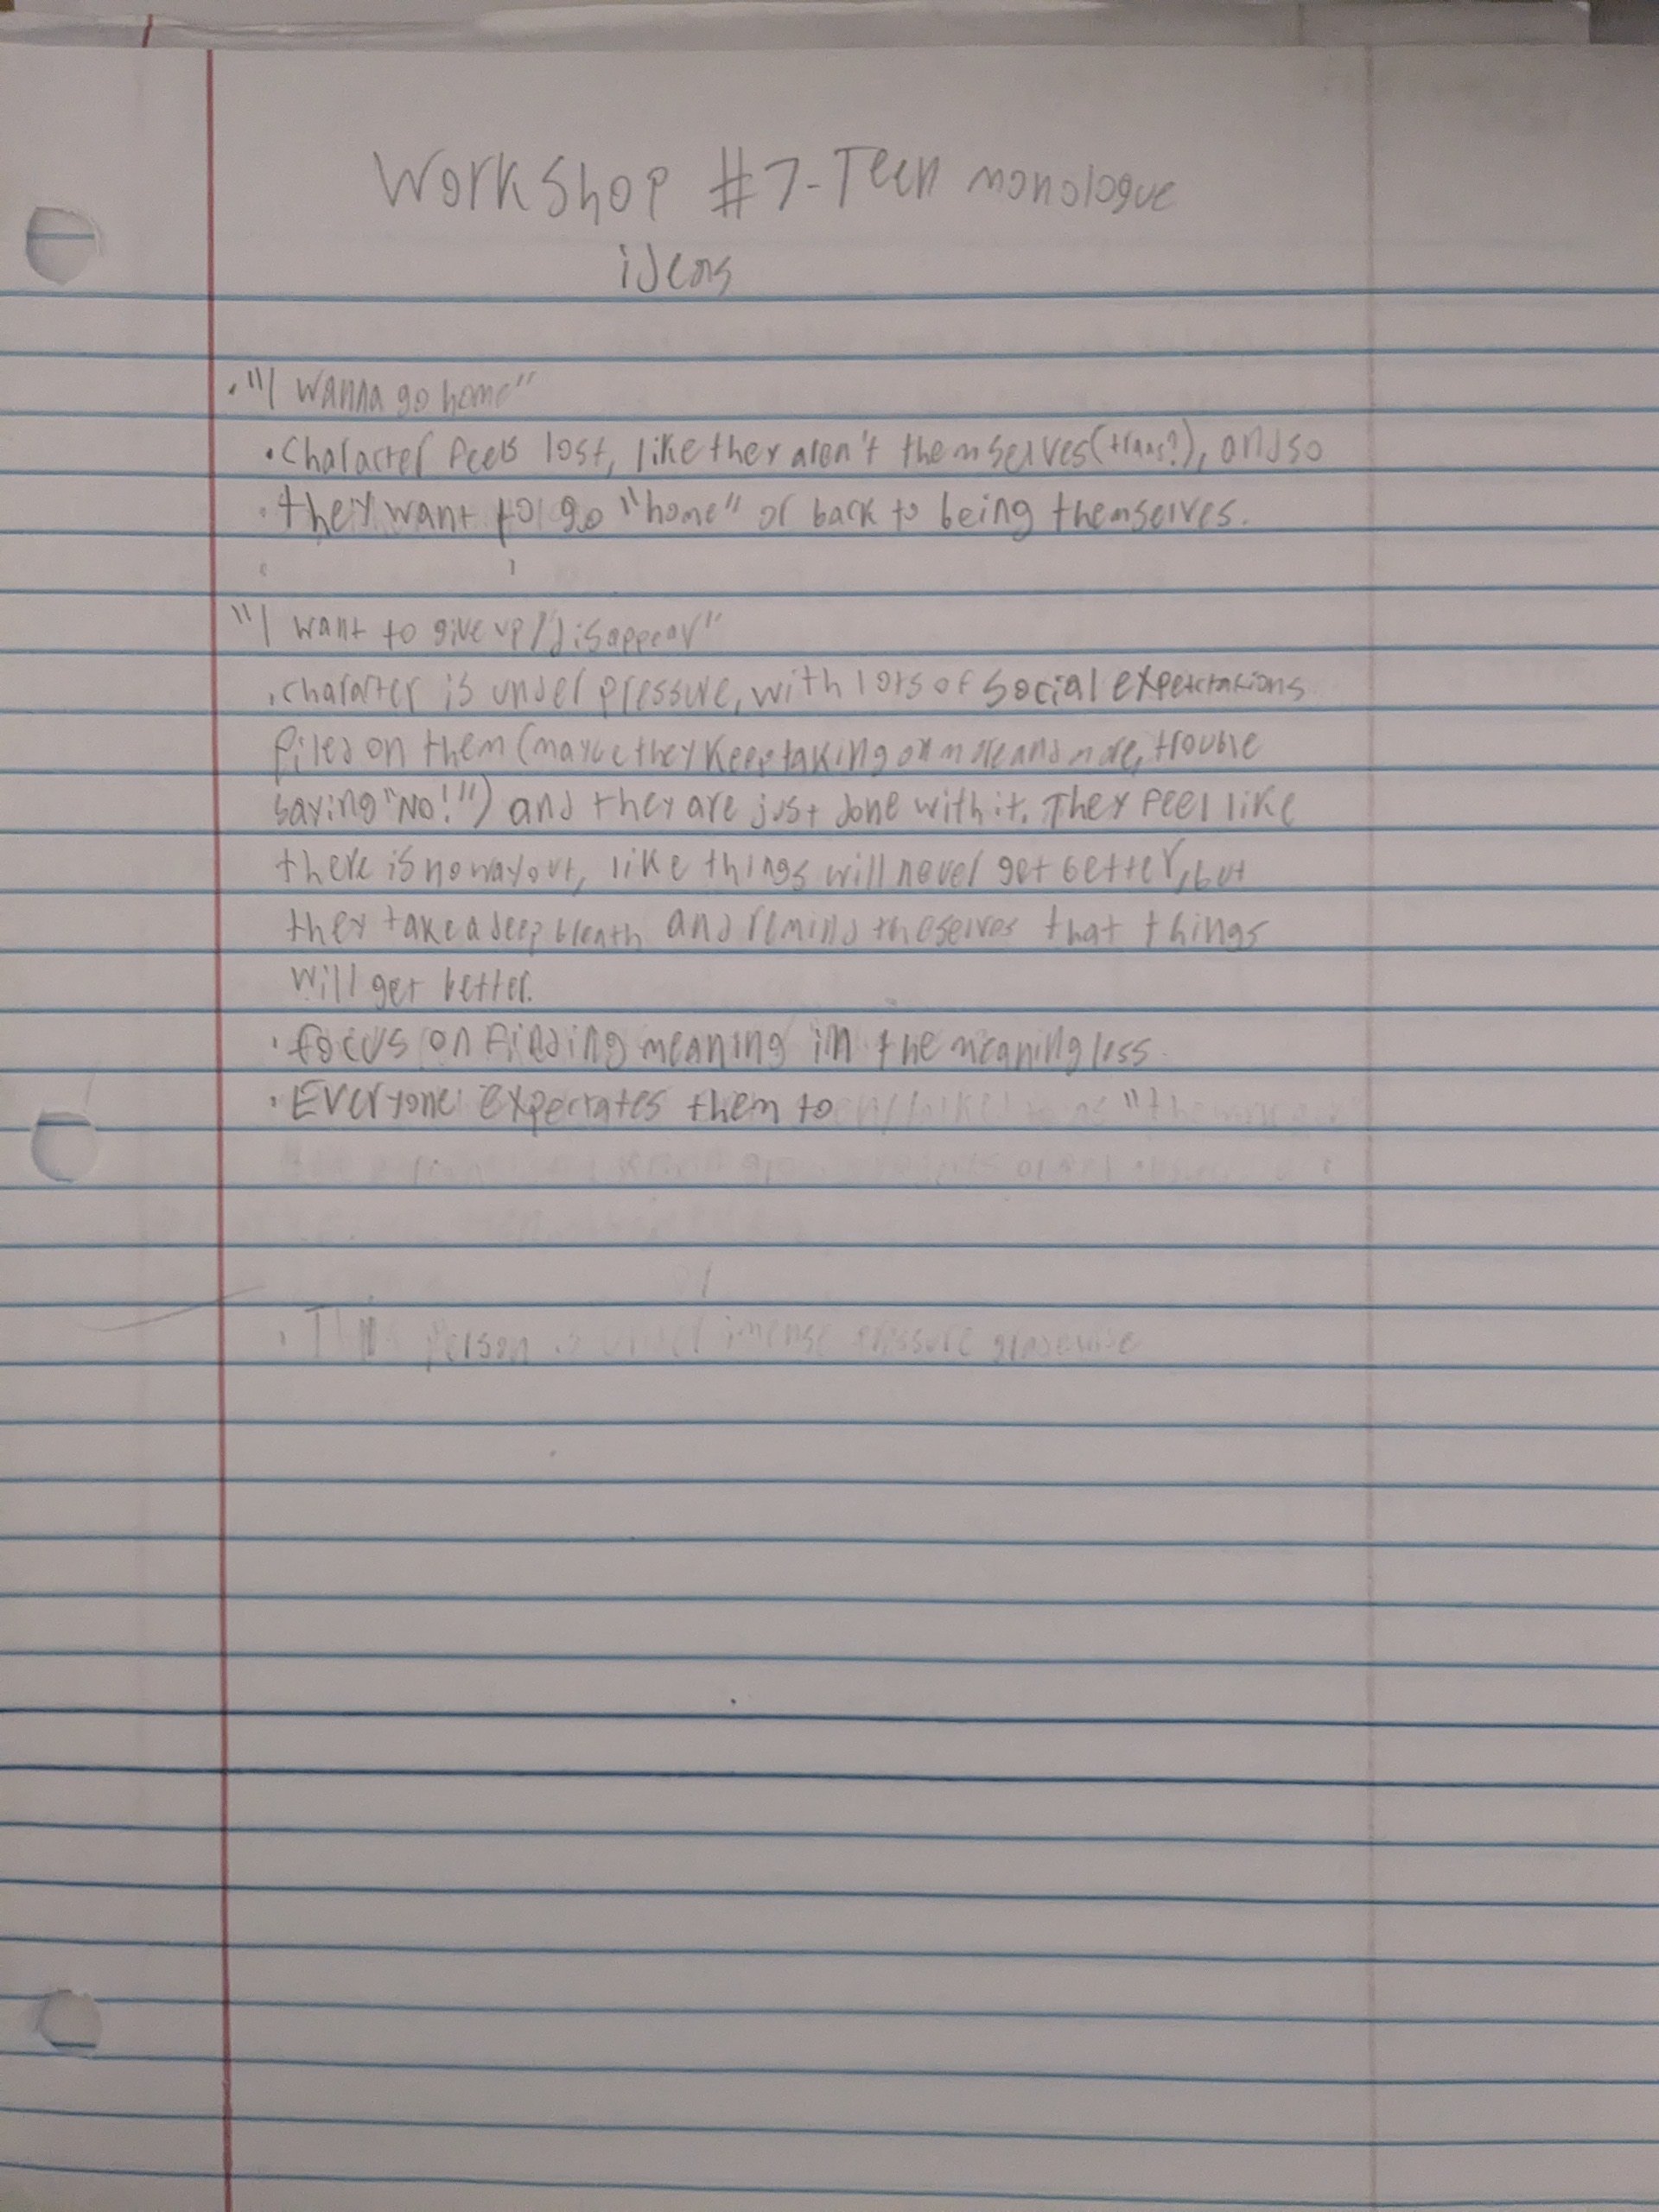 Workshop #7-Teen monologue
ideas
• "I wanna go home"
• Character feels lost, like they aren't themselves (trans?), and so
• they want to go "home" or back to being themselves.
"I want to give up/disappear"
• character is under pressure, with lots of social expectations
piled on them (maybe they keep taking on more and more, trouble
saying "No!") and they are just done with it. They feel like
there is no way out, like things will never get better, but
they take a deep breath and remind theselves that things
will get better.
• focus on finding meaning in the meaningless.
• Everyone expectates them to
• This person is under imense pressure gradewise